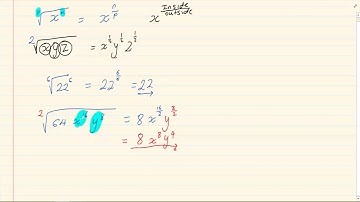 ᵖ√xⁿ = x^(n/p) x^(Inside/outside)
²√xyz = x^(1/2) y^(1/2) z^(1/2)
⁶√22⁶ = 22^(6/6) = 22
²√64 x¹⁶ y⁸ = 8 x^(16/2) y^(8/2)
= 8 x⁸ y⁴